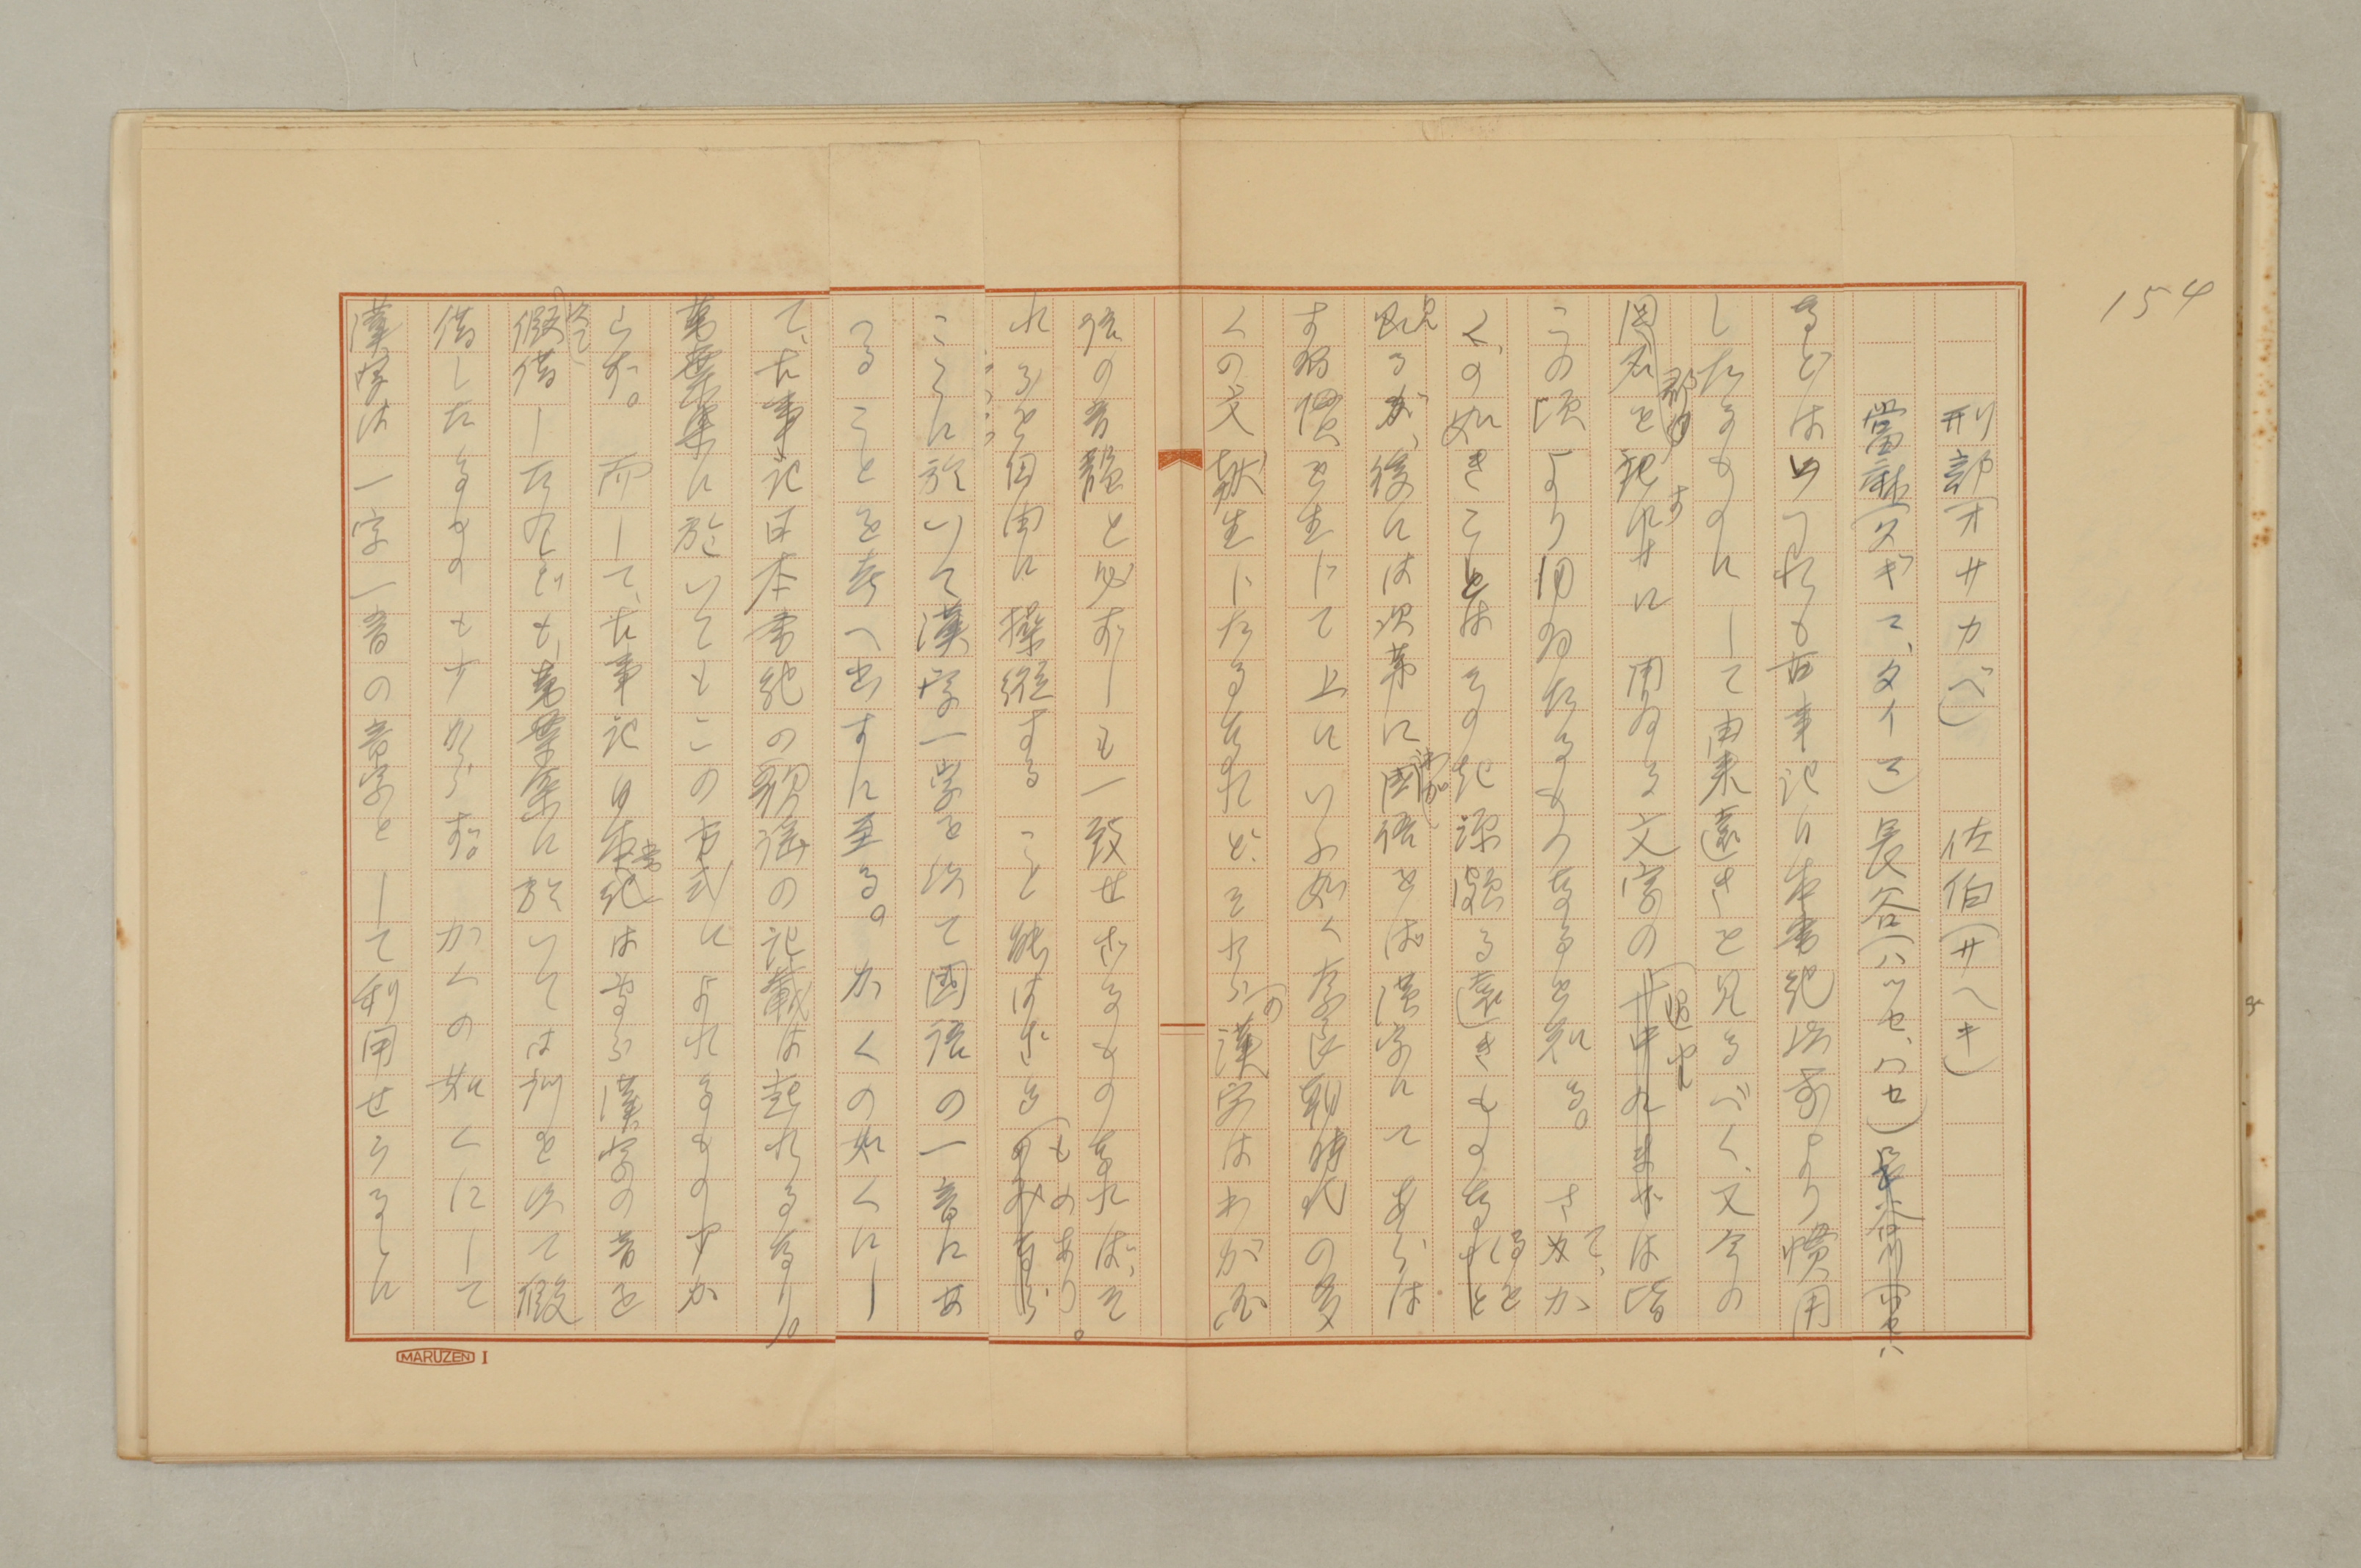 154
刑部(オサカベ) 佐伯(サヘキ)
當麻(タギマ、タイマ)長谷(ハツセ、ハセ)
などはいづれも古事記日本書紀以前より慣用
したるものにして由来遠きを見るべく、又今の
國名を記すに用ゐる文字の
郡
この頃より用ゐたるものなるを知る。さて、か
くの如きことはその起源頗る遠きものなると
見るが、後には次第に國語をば漢字にてあらは
す習慣を生じて上にいふ如く奈良朝時代の多
くの文献生じたるなれど、それらの漢字はわが國
語の音韻と必ずしも一致せざるものなれば、そ
れらを自由に操縦すること能はざるものあり。
ここに於いて漢字一字を以て國語の一音にあ
つることを考へ出すに至る。かくの如くにし
て、古事記日本書紀の歌謡の記載は起れるなり。
萬葉集に於いてもこの方式によれるもの少か
らず。而して、古事記日本書紀は専ら漢字の音を
以て
假借したれども、萬葉集に於いては訓を以て假
借したるものも少からず。かくの如くにして
漢字は一字一音の音字として利用せらるるに
MARUZEN I